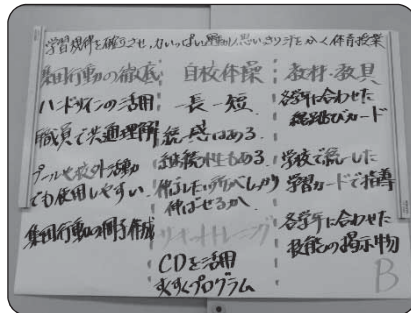 学習規律を確立させ、力いっぱい運動し思いきり汗をかく体育授業
集団行動の徹底
ハンドサインの活用
職員で共通理解
プールや校外活動
でも使用しやすい。
集団行動の冊子作成
自校体操
一長一短
統一感はある。
継続性もある。
伸ばしたい所がしっかり
伸ばせるか。
サーキットトレーニング
CDを活用
すくすくプログラム
教材・教具
各学年に合わせた
縄跳びカード
学校で統一した
学習カードで指導
各学年に合わせた
技能の掲示物
B